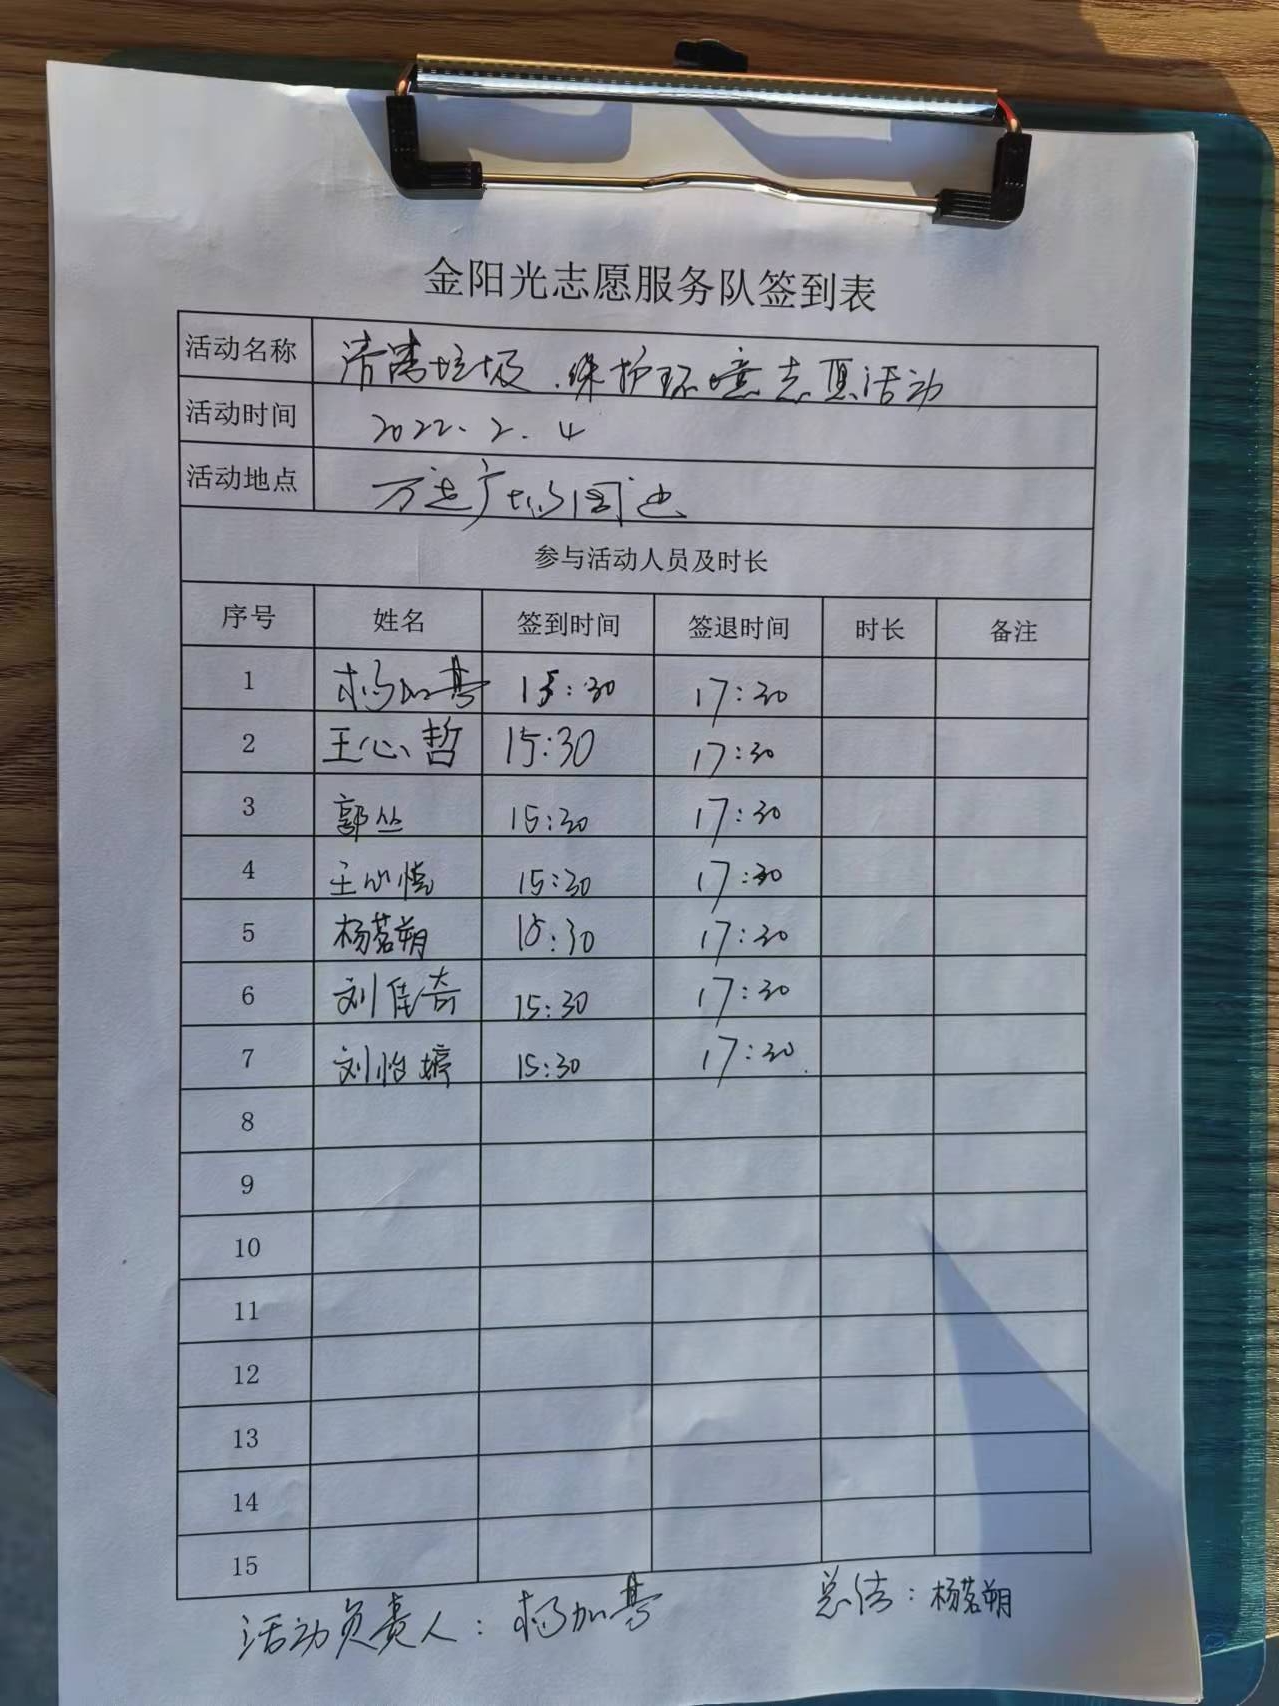 金阳光志愿服务队签到表
活动名称 清离垃圾.保护环境志愿活动
活动时间 2022.2.4
活动地点 万达广场周边
参与活动人员及时长
序号 姓名 签到时间 签退时间 时长 备注
1 15:30 17:30
2 王心哲 15:30 17:30
3 郭丛 15:30 17:30
4 王心悦 15:30 17:30
5 杨茗朔 15:30 17:30
6 刘佳奇 15:30 17:30
7 刘怡婷 15:30 17:30
8
9
10
11
12
13
14
15
活动负责人: 总结:杨茗朔